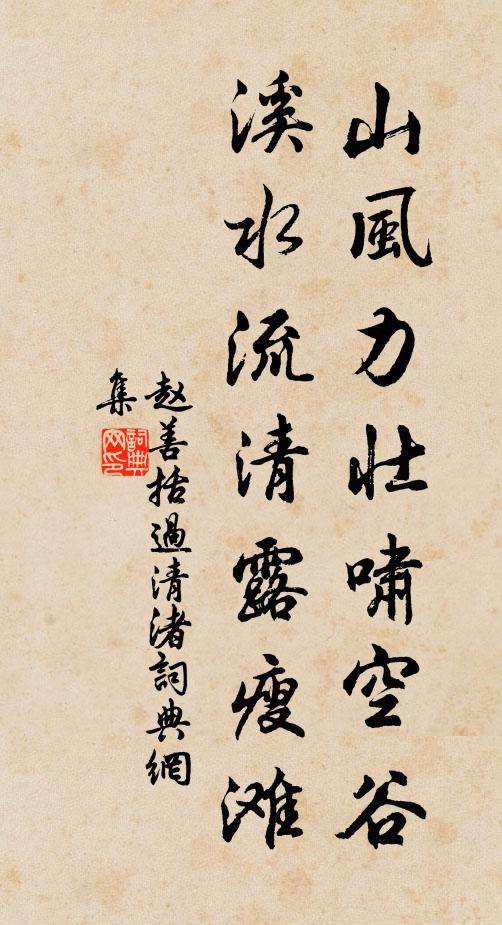 山風力壮嘯空谷
溪水流清露瘦滩
赵善括過清渚詞典網
集
詞典網印